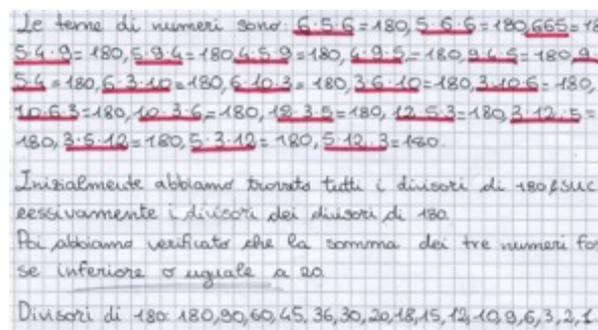 Le terne di numeri sono: 6·5·6=180, 5·6·6=180, 665=18
5·4·9=180, 5·9·4=180 4·5·9=180, 4·9·5=180 9·4·5=180 9·
5·4=180, 6·3·10=180, 6·10·3=180, 3·6·10=180, 3·10·6=180,
10·6·3=180, 10·3·6=180, 12·3·5=180, 12·5·3=180, 3·12·5=
180, 3·5·12=180, 5·3·12=180, 5·12·3=180.
Inizialmente abbiamo trovato tutti i divisori di 180 e suc
cessivamente i divisori dei divisori di 180.
Poi abbiamo verificato che la somma dei tre numeri fos
se inferiore o uguale a 20.
Divisori di 180: 180,90,60,45,36,30,20,18,15,12,10,9,6,3,2,1.